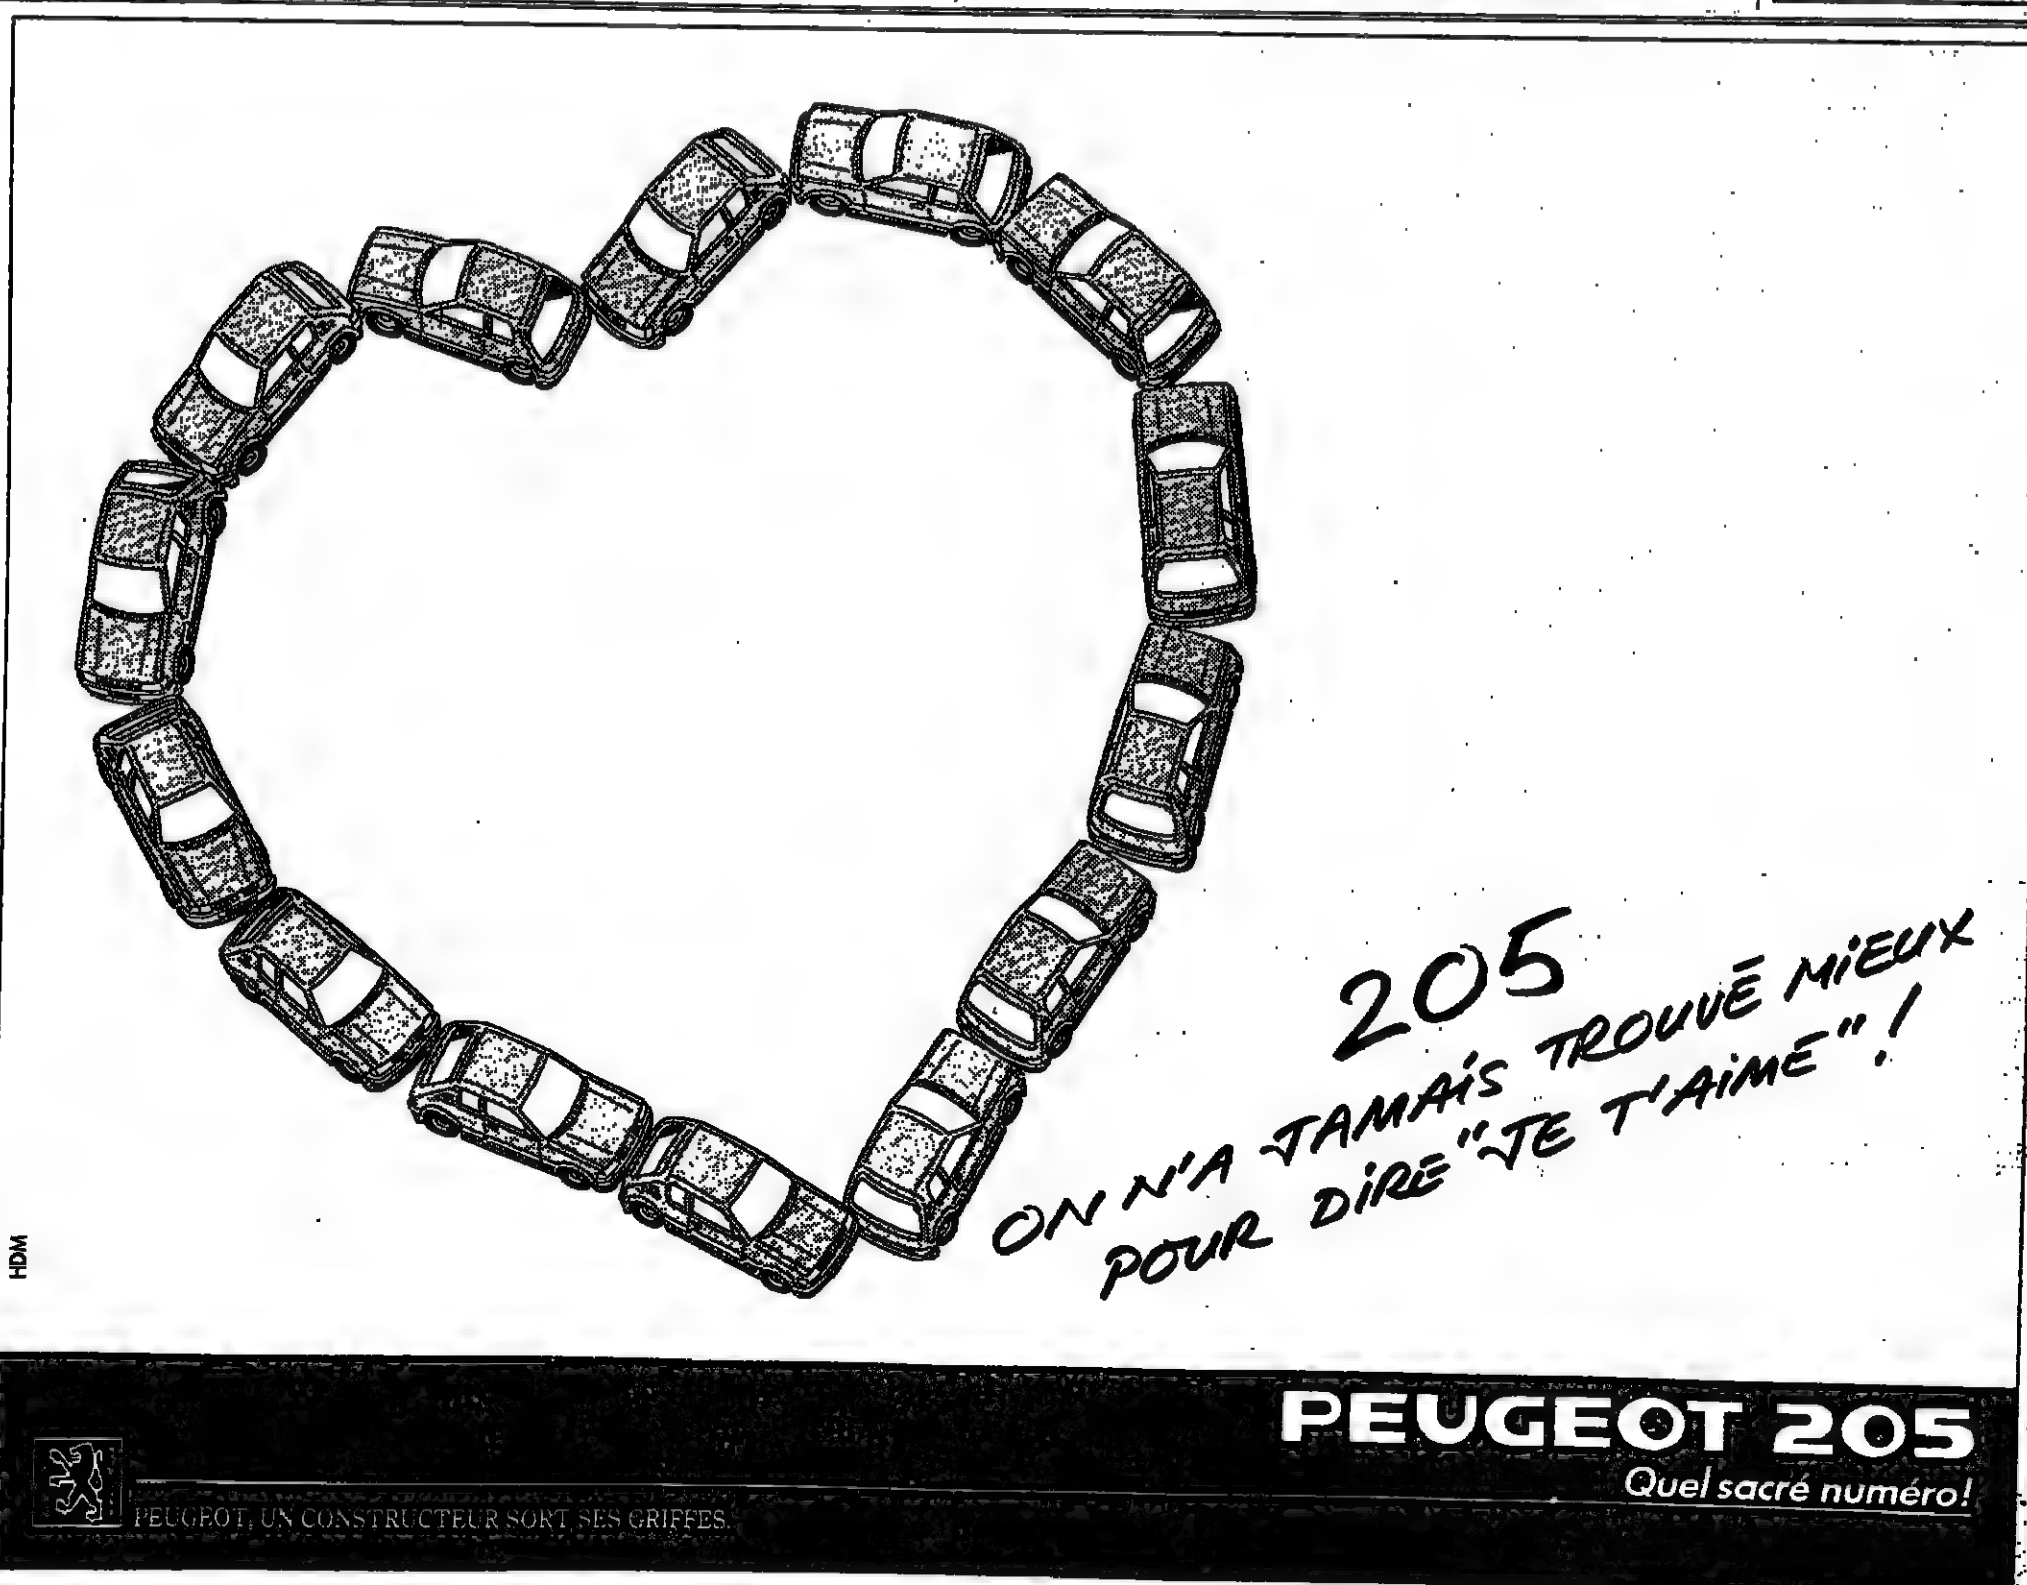 205
ON N'A JAMAIS TROUVÉ MIEUX
POUR DIRE "JE T'AIME" !
HDM
PEUGEOT 205
Quel sacré numéro!
PEUGEOT, UN CONSTRUCTEUR SORT SES GRIFFES.